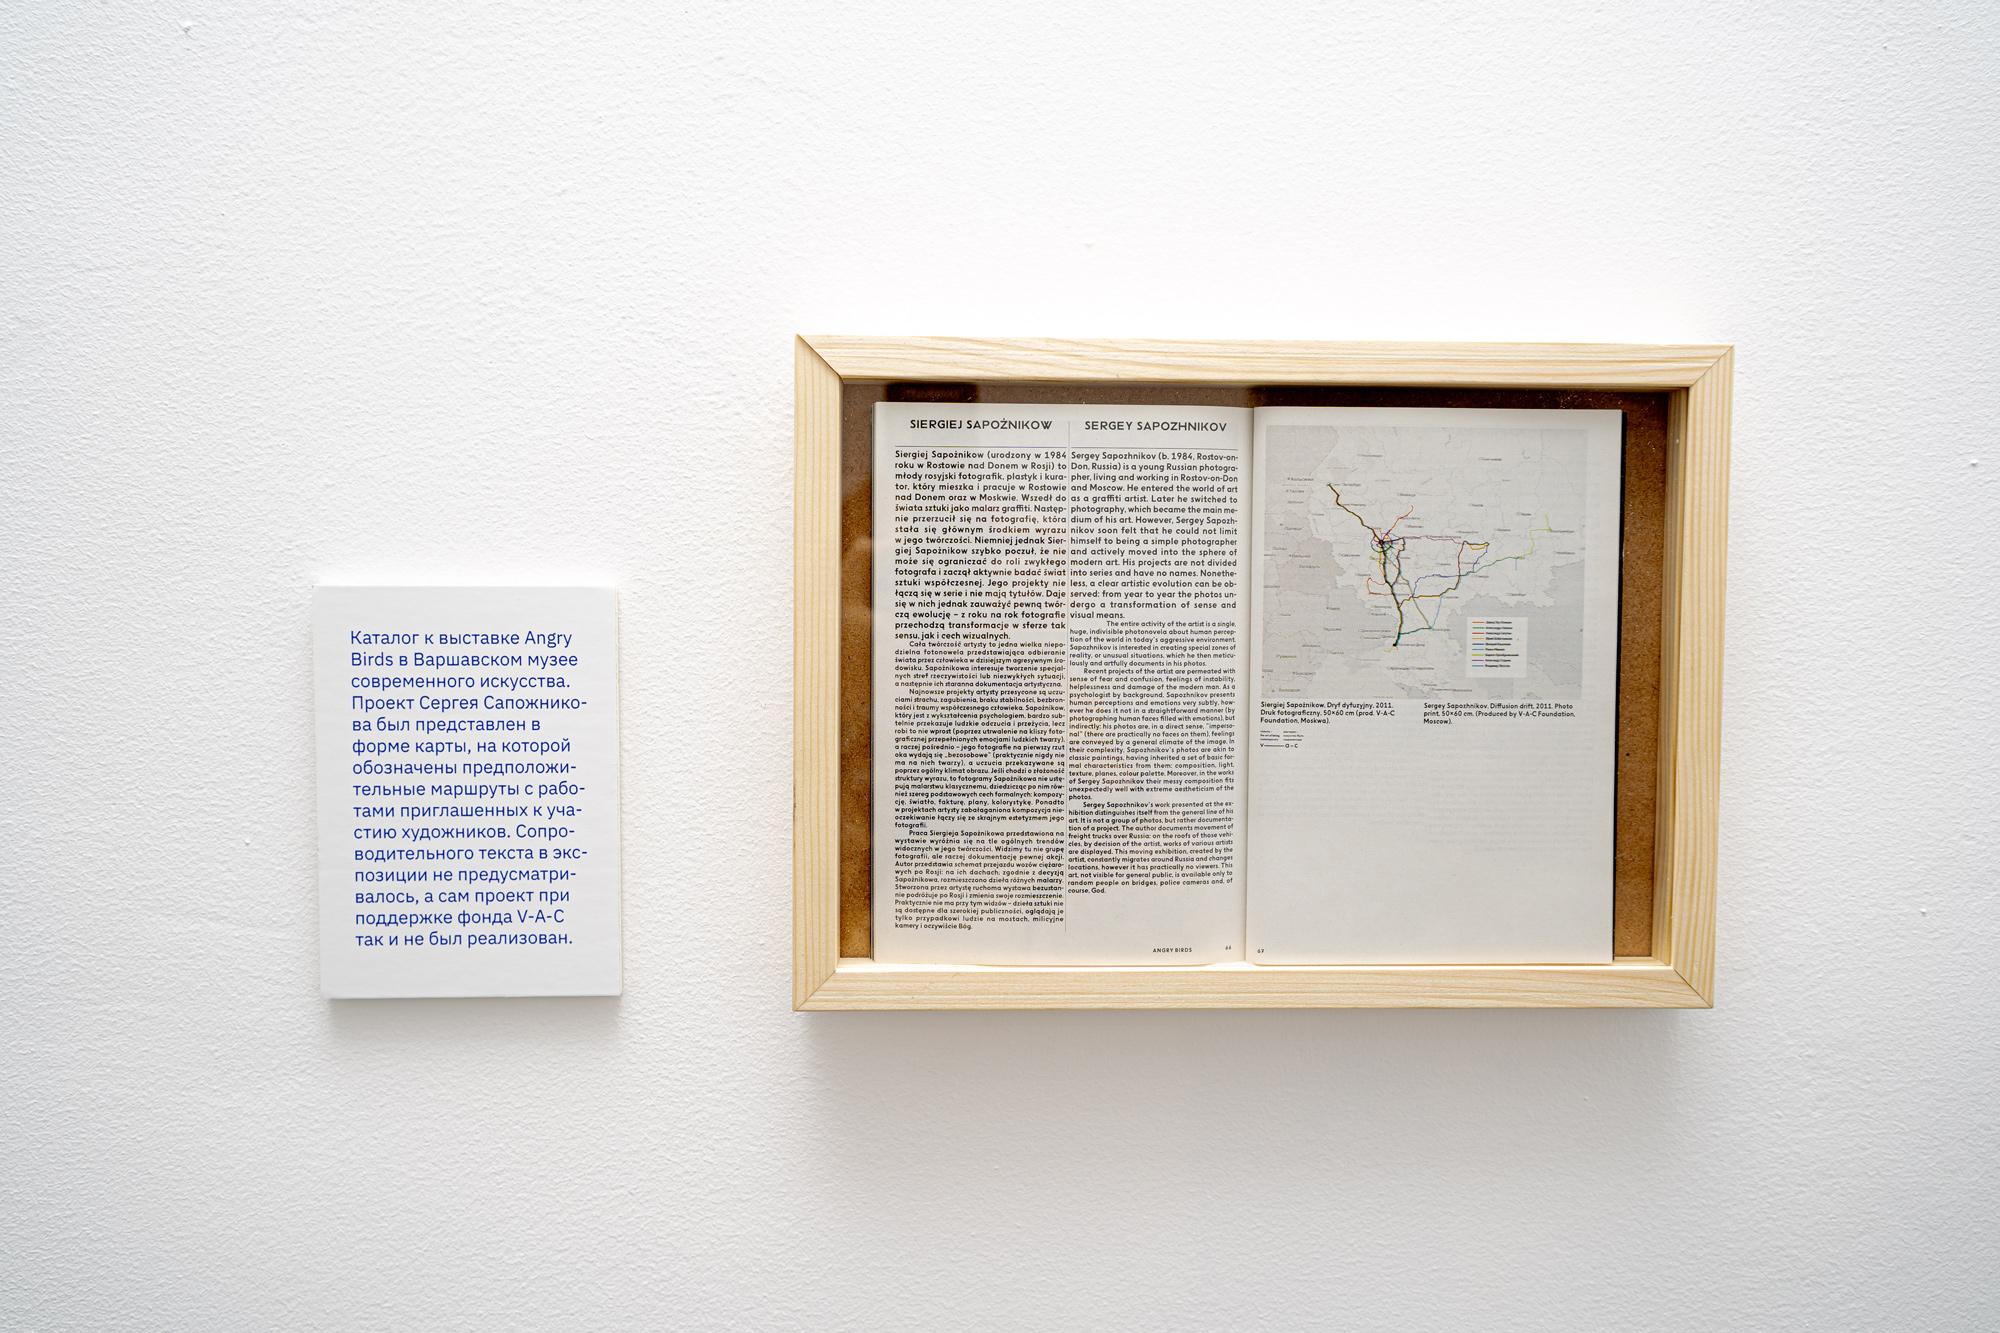 Каталог к выставке Angry
Birds в Варшавском музее
современного искусства.
Проект Сергея Сапожнико-
ва был представлен в
форме карты, на которой
обозначены предположи-
тельные маршруты с рабо-
тами приглашенных к уча-
стию художников. Сопро-
водительного текста в экс-
позиции не предусматри-
валось, а сам проект при
поддержке фонда V-A-C
так и не был реализован.
SIERGIEJ SAPOŻNIKOW
Siergiej Sapożnikow (urodzony w 1984
roku w Rostowie nad Donem w Rosji) to
młody rosyjski fotografik, plastyk i kura-
tor, który mieszka i pracuje w Rostowie
nad Donem oraz w Moskwie. Wszedł do
świata sztuki jako malarz graffiti. Następ-
nie przerzucił się na fotografię, która
stała się głównym środkiem wyrazu
w jego twórczości. Niemniej jednak Sier-
giej Sapożnikow szybko poczuł, że nie
może się ograniczać do roli zwykłego
fotografa i zaczął aktywnie badać świat
sztuki współczesnej. Jego projekty nie
łączą się w serie i nie mają tytułów. Daje
się w nich jednak zauważyć pewną twór-
czą ewolucję – z roku na rok fotografie
przechodzą transformacje w sferze tak
sensu, jak i cech wizualnych.
Cała twórczość artysty to jedna wielka niepo-
dzielna fotonowela przedstawiająca odbieranie
świata przez człowieka w dzisiejszym agresywnym śro-
dowisku. Sapożnikowa interesuje tworzenie specjal-
nych stref rzeczywistości lub niezwykłych sytuacji,
a następnie ich staranna dokumentacja artystyczna.
Najnowsze projekty artysty przesycone są uczu-
ciami strachu, zagubienia, braku stabilności, bezbron-
ności i traumy współczesnego człowieka. Sapożnikow,
który jest z wykształcenia psychologiem, bardzo sub-
telnie przekazuje ludzkie odczucia i przeżycia, lecz
robi to nie wprost (poprzez utrwalenie na kliszy foto-
graficznej przepełnionych emocjami ludzkich twarzy),
a raczej pośrednio – jego fotografie na pierwszy rzut
oka wydają się „bezosobowe” (praktycznie nigdy nie
ma na nich twarzy), a uczucia przekazywane są
poprzez ogólny klimat obrazu. Jeśli chodzi o złożoność
struktury wyrazu, to fotogramy Sapożnikowa nie ustę-
pują malarstwu klasycznemu, dziedzicząc po nim rów-
nież szereg podstawowych cech formalnych: kompozy-
cję, światło, fakturę, plany, kolorystykę. Ponadto
w projektach artysty zabałaganiona kompozycja nie-
oczekiwanie łączy się ze skrajnym estetyzmem jego
fotografii.
Praca Siergieja Sapożnikowa przedstawiona na
wystawie wyróżnia się na tle ogólnych trendów
widocznych w jego twórczości. Widzimy tu nie grupę
fotografii, ale raczej dokumentację pewnej akcji.
Autor przedstawia schemat przejazdu wozów ciężaro-
wych po Rosji: na ich dachach, zgodnie z decyzją
Sapożnikowa, rozmieszczono dzieła różnych malarzy.
Stworzona przez artystę ruchoma wystawa bezustan-
nie podróżuje po Rosji i zmienia swoje rozmieszczenie.
Praktycznie nie ma przy tym widzów – dzieła sztuki nie
są dostępne dla szerokiej publiczności, oglądają je
tylko przypadkowi ludzie na mostach, milicyjne
kamery i oczywiście Bóg.
SERGEY SAPOZHNIKOV
Sergey Sapozhnikov (b. 1984, Rostov-on-
Don, Russia) is a young Russian photogra-
pher, living and working in Rostov-on-Don
and Moscow. He entered the world of art
as a graffiti artist. Later he switched to
photography, which became the main me-
dium of his art. However, Sergey Sapozh-
nikov soon felt that he could not limit
himself to being a simple photographer
and actively moved into the sphere of
modern art. His projects are not divided
into series and have no names. Nonethe-
less, a clear artistic evolution can be ob-
served: from year to year the photos un-
dergo a transformation of sense and
visual means.
The entire activity of the artist is a single,
huge, indivisible photonovela about human percep-
tion of the world in today's aggressive environment.
Sapozhnikov is interested in creating special zones of
reality, or unusual situations, which he then meticu-
lously and artfully documents in his photos.
Recent projects of the artist are permeated with
sense of fear and confusion, feelings of instability,
helplessness and damage of the modern man. As a
psychologist by background, Sapozhnikov presents
human perceptions and emotions very subtly, how-
ever he does it not in a straightforward manner (by
photographing human faces filled with emotions), but
indirectly; his photos are, in a direct sense, "imperso-
nal" (there are practically no faces on them), feelings
are conveyed by a general climate of the image. In
their complexity, Sapozhnikov's photos are akin to
classic paintings, having inherited a set of basic for-
mal characteristics from them: composition, light,
texture, planes, colour palette. Moreover, in the works
of Sergey Sapozhnikov their messy composition fits
unexpectedly well with extreme aestheticism of the
photos.
Sergey Sapozhnikov's work presented at the ex-
hibition distinguishes itself from the general line of his
art. It is not a group of photos, but rather documenta-
tion of a project. The author documents movement of
freight trucks over Russia: on the roofs of those vehi-
cles, by decision of the artist, works of various artists
are displayed. This moving exhibition, created by the
artist, constantly migrates around Russia and changes
locations, however it has practically no viewers. This
art, not visible for general public, is available only to
random people on bridges, police cameras and, of
course, God.
ANGRY BIRDS 66
Siergiej Sapożnikow, Dryf dyfuzyjny, 2011.
Druk fotograficzny, 50×60 cm (prod. V-A-C
Foundation, Moskwa).
Sergey Sapozhnikov, Diffusion drift, 2011. Photo
print, 50×60 cm. (Produced by V-A-C Foundation,
Moscow).
67